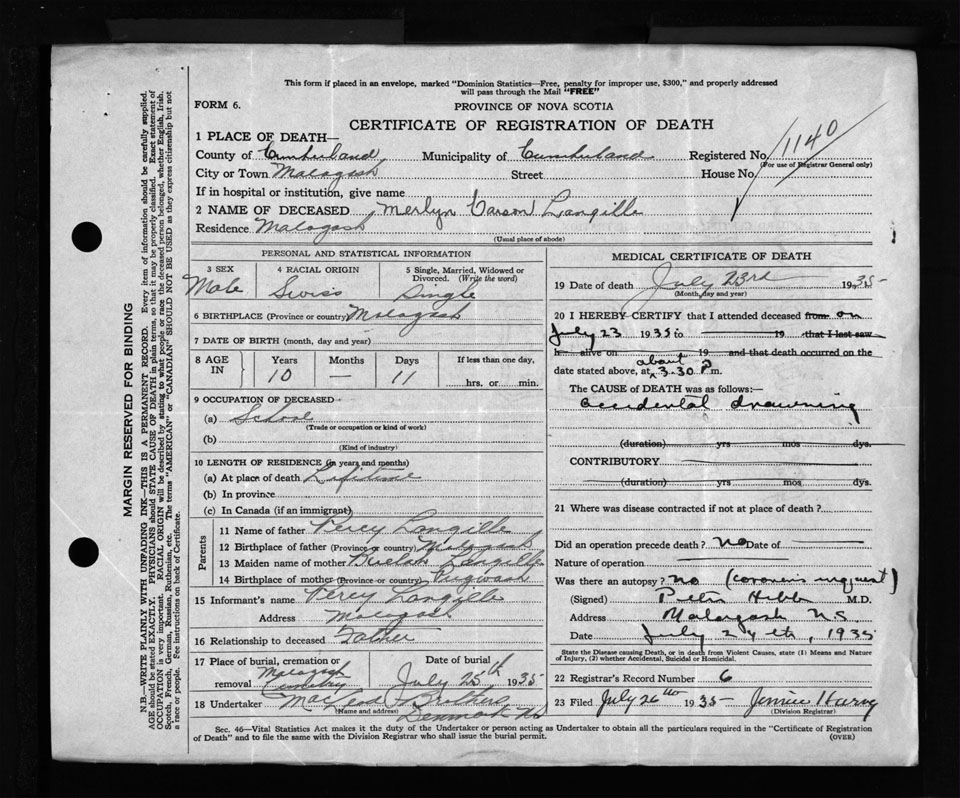 This form if placed in an envelope, marked "Dominion Statistics—Free, penalty for improper use, $300," and properly addressed
will pass through the Mail "FREE"
FORM 6.
PROVINCE OF NOVA SCOTIA
CERTIFICATE OF REGISTRATION OF DEATH
1 PLACE OF DEATH—
County of Cumberland Municipality of Cumberland Registered No. 1140
(For use of Registrar General only)
City or Town Malagash Street House No.
If in hospital or institution, give name
2 NAME OF DECEASED Merlyn Carson Langille
Residence Malagash
(Usual place of abode)
PERSONAL AND STATISTICAL INFORMATION
3 SEX 4 RACIAL ORIGIN 5 Single, Married, Widowed or
Divorced. (Write the word)
Male Swiss Single
6 BIRTHPLACE (Province or country) Malagash
7 DATE OF BIRTH (month, day and year)
8 AGE IN Years Months Days If less than one day,
10 — 11 hrs. or min.
9 OCCUPATION OF DECEASED
(a) School
(Trade or occupation or kind of work)
(b)
(Kind of industry)
10 LENGTH OF RESIDENCE (in years and months)
(a) At place of death Lifetime
(b) In province
(c) In Canada (if an immigrant)
Parents
11 Name of father Percy Langille
12 Birthplace of father (Province or country) Malagash
13 Maiden name of mother Langille
14 Birthplace of mother (Province or country) Pugwash
15 Informant's name Percy Langille
Address Malagash
16 Relationship to deceased Father
17 Place of burial, cremation or Date of burial
removal Malagash Cemetery July 25th 1935
18 Undertaker
(Name and address)
Denmark NS
MEDICAL CERTIFICATE OF DEATH
19 Date of death July 23rd 1935
(Month, day and year)
20 I HEREBY CERTIFY that I attended deceased from on
July 23 1935 to 19 that I last saw
h alive on 19 and that death occurred on the
about
date stated above, at 3.30 P m.
The CAUSE of DEATH was as follows:—
accidental drowning
(duration) yrs mos dys.
CONTRIBUTORY
(duration) yrs mos dys.
21 Where was disease contracted if not at place of death?
Did an operation precede death? no Date of —
Nature of operation —
Was there an autopsy? no (coroner's inquest)
(Signed) M.D.
Address Malagash NS
Date July 24th, 1935
State the Disease causing Death, or in death from Violent Causes, state (1) Means and Nature
of Injury, (2) whether Accidental, Suicidal or Homicidal.
22 Registrar's Record Number 6
23 Filed July 26th 1935
(Division Registrar)
Sec. 46—Vital Statistics Act makes it the duty of the Undertaker or person acting as Undertaker to obtain all the particulars required in the "Certificate of Registration
of Death" and to file the same with the Division Registrar who shall issue the burial permit.
(OVER)
MARGIN RESERVED FOR BINDING
N.B.—WRITE PLAINLY WITH UNFADING INK—THIS IS A PERMANENT RECORD. Every item of information should be carefully supplied.
AGE should be stated EXACTLY. PHYSICIANS should STATE CAUSE OF DEATH in plain terms, so that it may be properly classified. Exact statement of
OCCUPATION is very important. RACIAL ORIGIN will be described by stating to what people or race the deceased person belonged, whether English, Irish,
Scotch, French, German, Russian, Ruthenian, etc. The terms "AMERICAN" or "CANADIAN" SHOULD NOT BE USED as they express citizenship but not
a race or people. Fee instructions on back of Certificate.